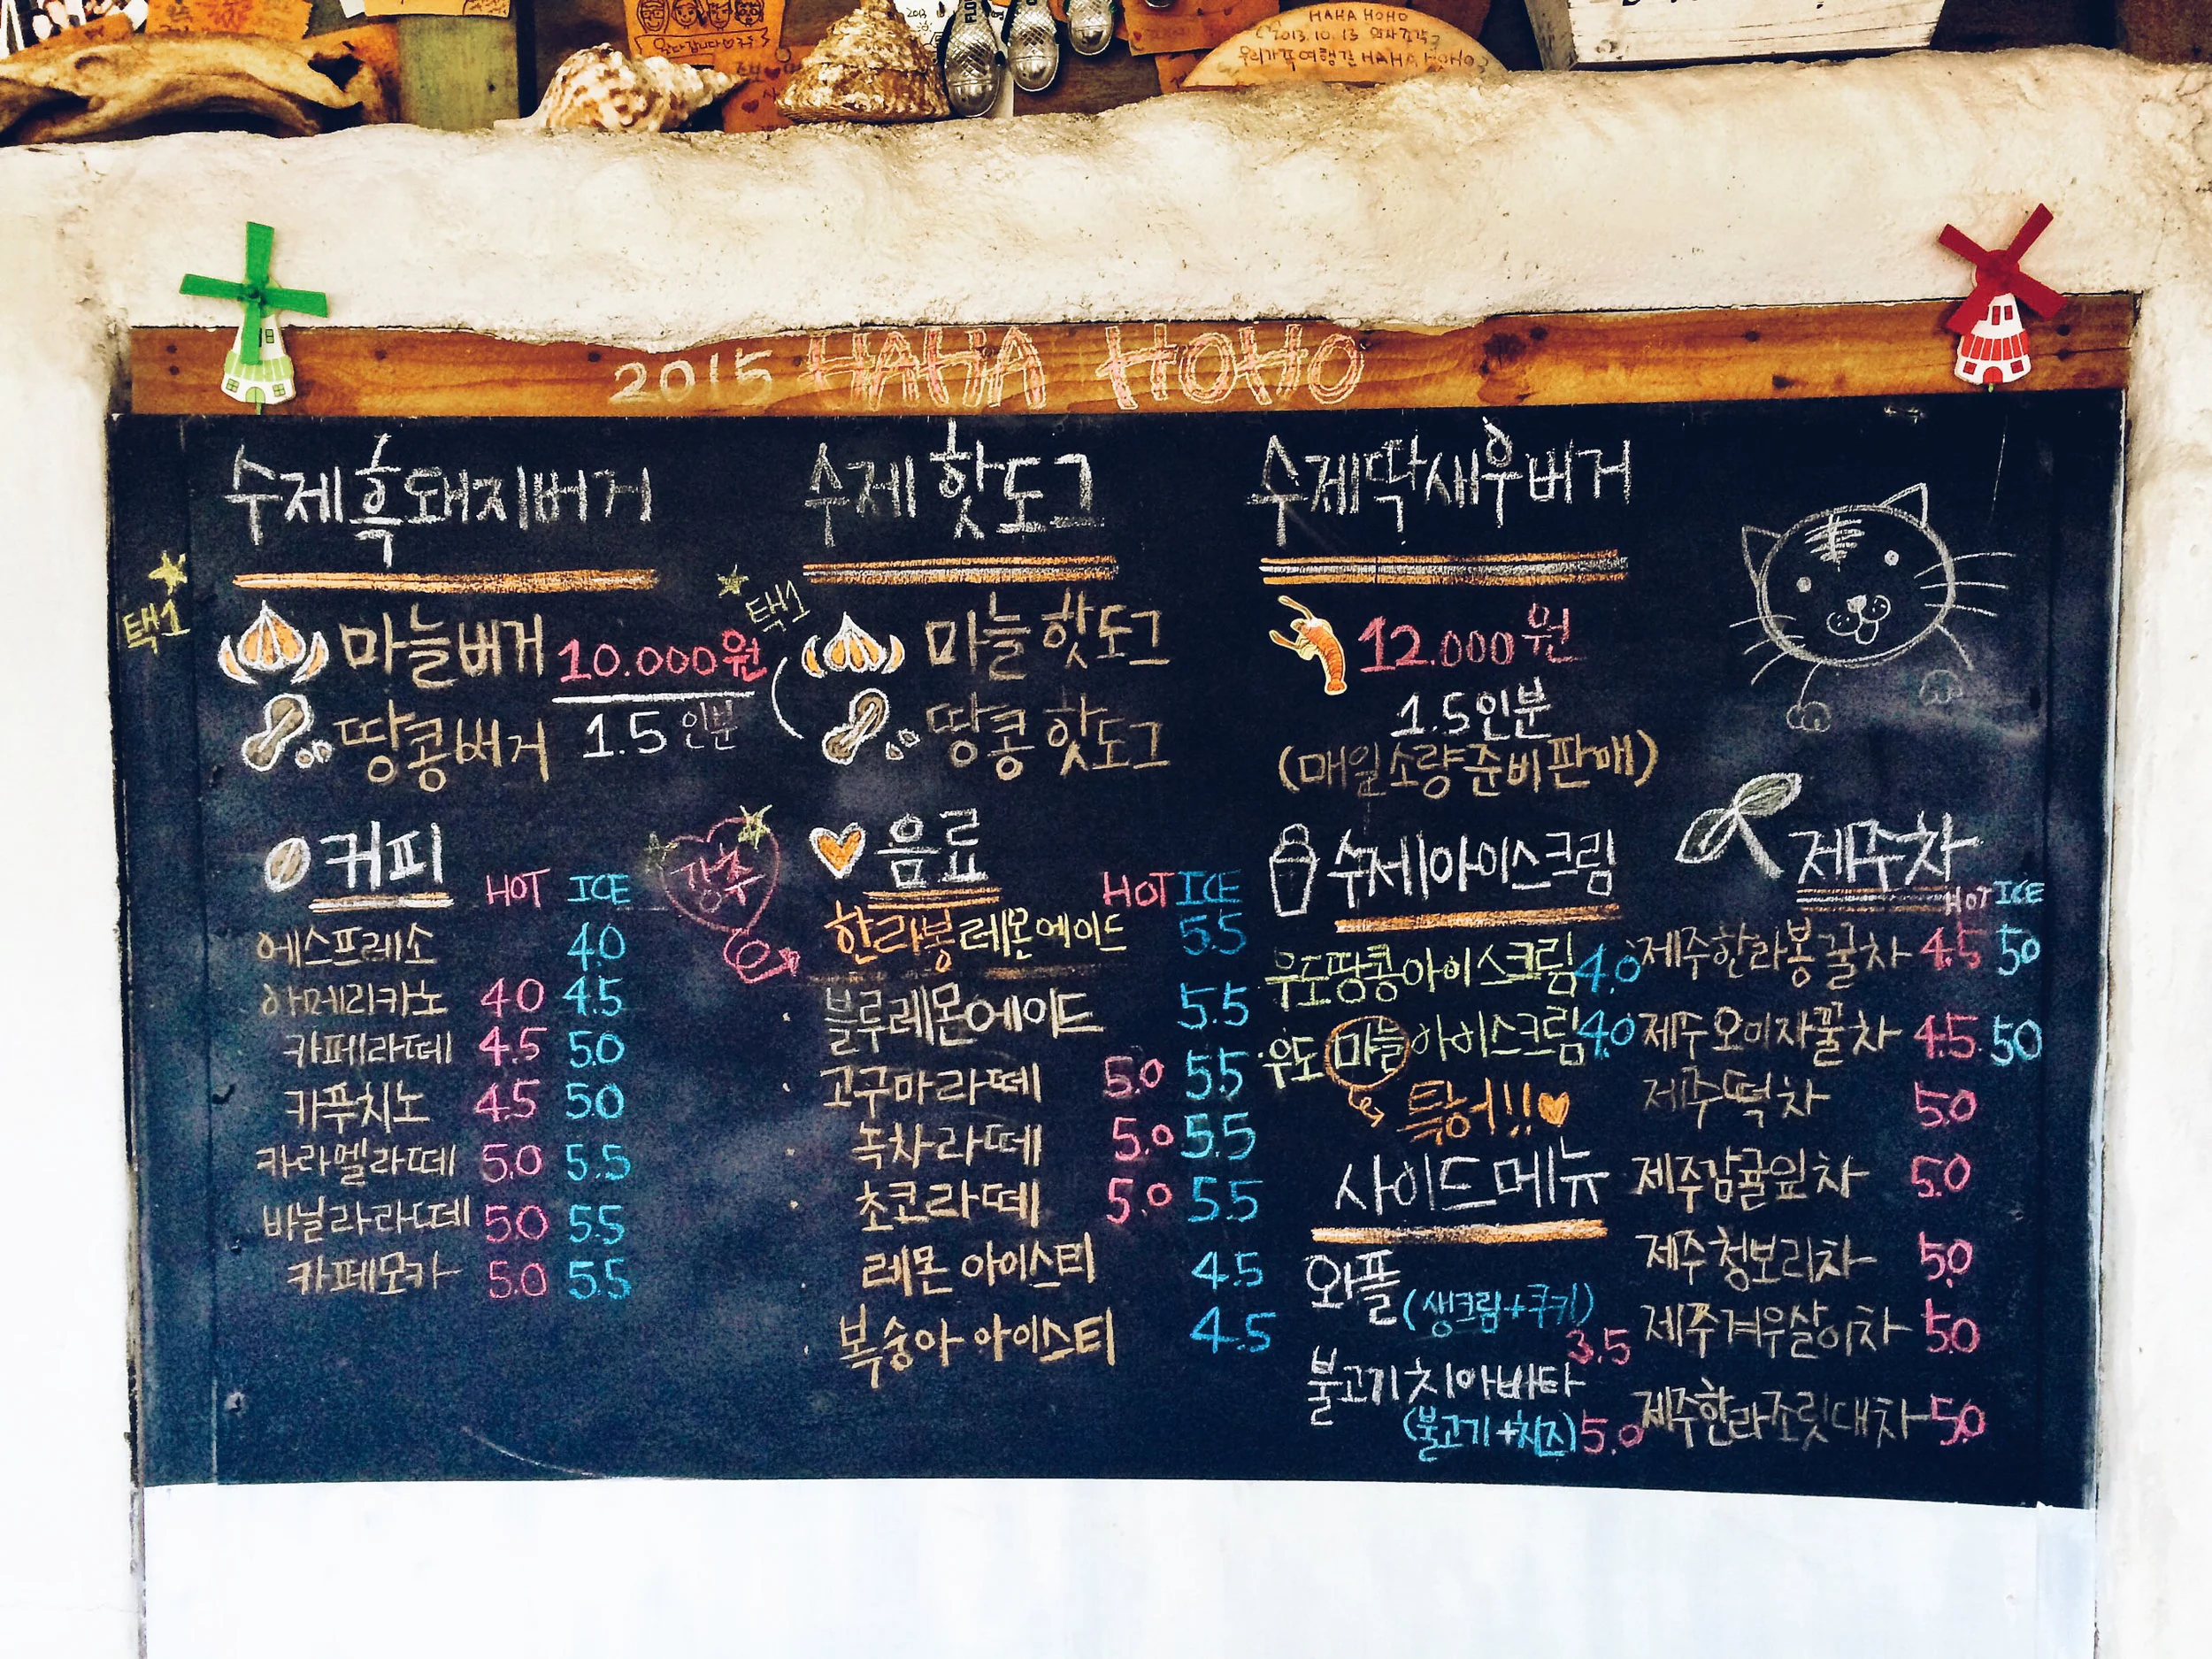 HAHA HOHO
2013.10.13
우리가족여행길 HAHA HOHO
2015 HAHA HOHO
수제흑돼지버거
택1
마늘버거
땅콩버거
10.000원
1.5인분
수제 핫도그
택1
마늘 핫도그
땅콩 핫도그
수제딱새우버거
12.000원
1.5인분
(매일소량준비판매)
커피
HOT ICE
에스프레소 4.0
아메리카노 4.0 4.5
카페라떼 4.5 5.0
카푸치노 4.5 5.0
카라멜라떼 5.0 5.5
바닐라라떼 5.0 5.5
카페모카 5.0 5.5
강추
음료
HOT ICE
한라봉레몬에이드 5.5
블루레몬에이드 5.5
고구마라떼 5.0 5.5
녹차라떼 5.0 5.5
초코라떼 5.0 5.5
레몬 아이스티 4.5
복숭아 아이스티 4.5
수제아이스크림
우도땅콩아이스크림 4.0
우도마늘아이스크림 4.0
특허!!
사이드메뉴
와플
(생크림+쿠키)
3.5
불고기치아바타
(불고기+치즈) 5.0
제주차
HOT ICE
제주한라봉꿀차 4.5 5.0
제주오미자꿀차 4.5 5.0
제주떡차 5.0
제주감귤잎차 5.0
제주청보리차 5.0
제주겨우살이차 5.0
제주한라조릿대차 5.0